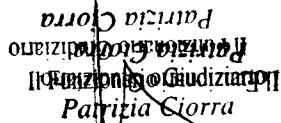 Patrizia Giorra
Il Funzionario Giudiziario
Patrizia Giorra
Il Funzionario Giudiziario
Patrizia Giorra